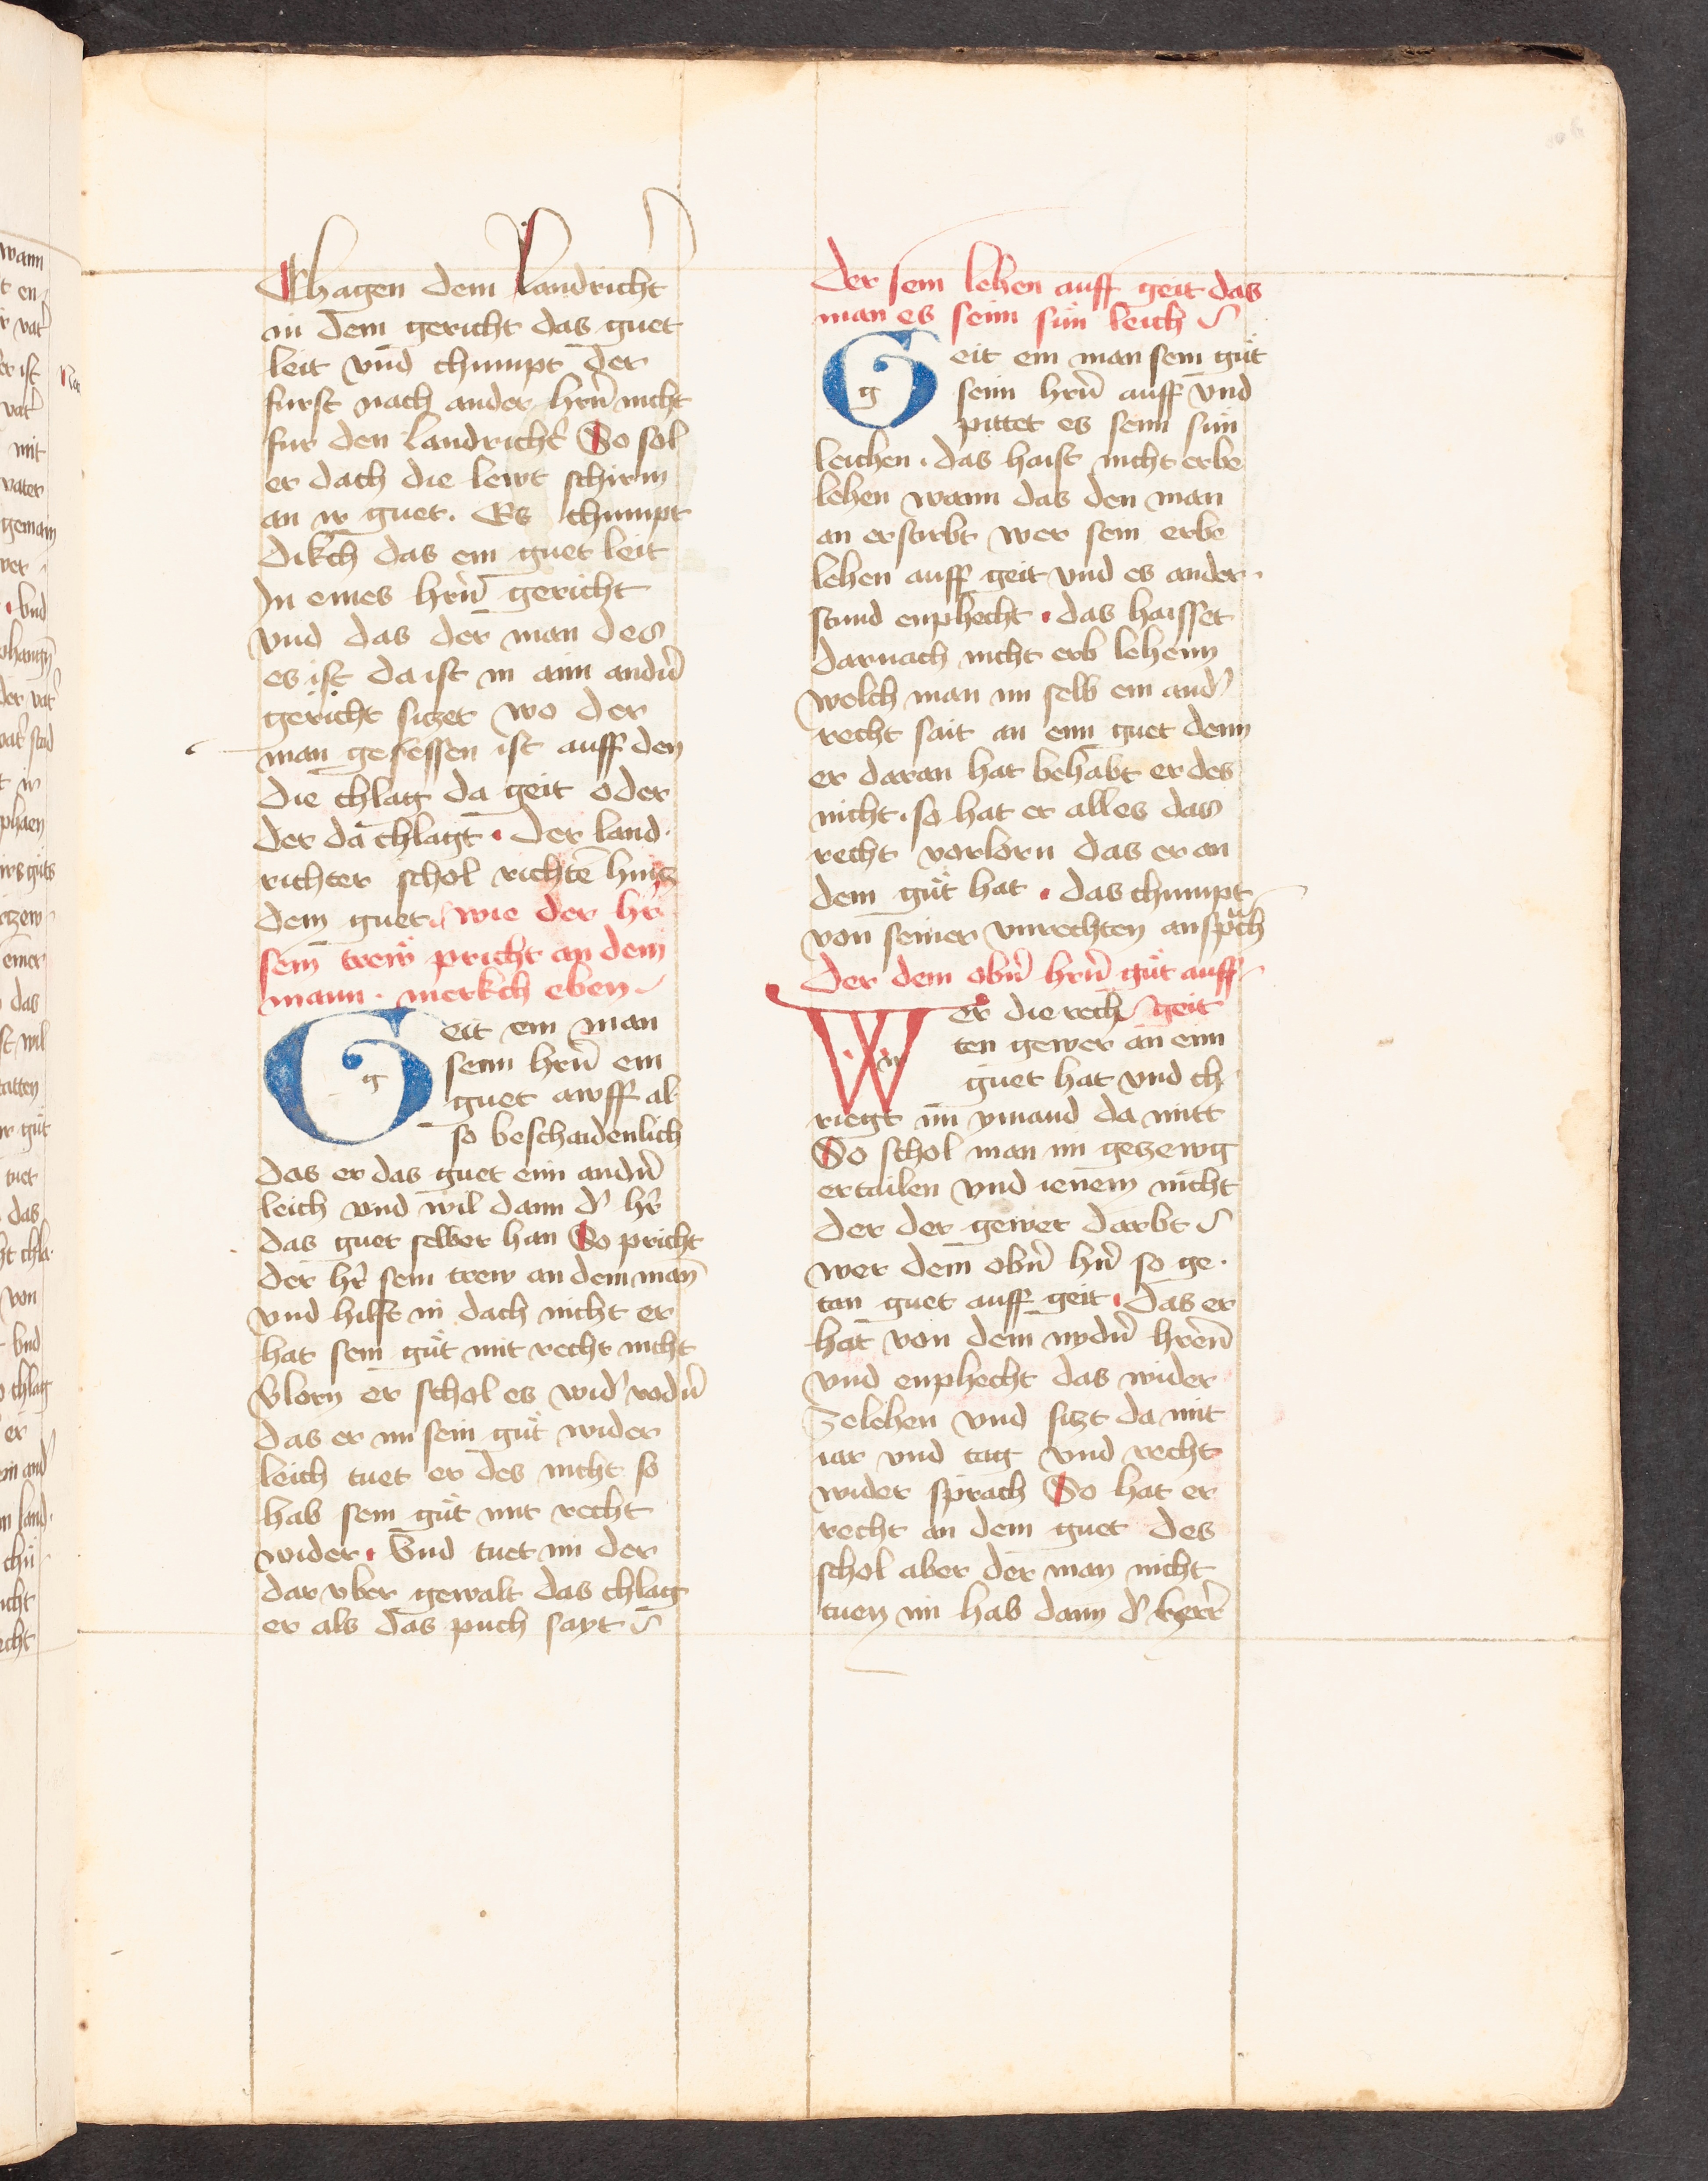 Chagen dem Landricht̉
in dem gericht das guet
leit vnd chumpt der
furst nach ander hrn̄ nicht
fur den landricht̉ So sol
er dach die lewt schirm
an ir guet. Es chumpt
dikch das ein guet leit
In eines hrn̄ gericht
vnd das der man des
es ist da ist in ainn andn̄
gericht siczet wo der
man gesessen ist auff den
die chlag da geit oder
der da chlagt · der land·
richter schol richtē hincz
dem guet. wie der hr̄
sein trew pricht an dem
mann · merkch eben
Geit ein man
seim hrn̄ ein
guet awff al
so beschaidenlich
das er das guet eim andn̄
leich vnd wil dann d̉ hr̄
das guet selber han So pricht
der hr̄ sein trew an dem man
vnd hilfft in dach nicht er
hat sein gůt mit recht nicht
v̉lorn er schol es wid̉ vodn̄
das er im sein gůt wider
leich tuet er des nicht so
hab sein gůt mit recht
wider · Vnd tuet im der
dar vber gewalt das chlag
er als das puch sayt
der sein lehen auff geit das
man es seim sun leich
Geit ein man sein gůt
seim hrn̄ auff vnd
pittet es seim sun
leichen · das haist nicht erbe
lehen wann das den man
an erstirbt wer sein erbe
lehen auff geit vnd es ander·
stund enphecht · das haisset
darnach nicht erb lehenn
welch man im selb ein and̉
recht sait an eim guet denn
er daran hat behabt er des
nicht · so hat er alles das
recht verlorn das er an
dem gůt hat · das chumpt
von seiner vnrechten ansprͣch
der dem obn̄ hrn̄ gůt auff
Wer die rech geit
ten gewer an eim
guet hat vnd ch
riegt im ymand da mitt
So schol man im geczewg
ertailen vnd ienem nicht
der der gewer darbt
wer dem obn̄ hn̄ so ge·
tan guet auff geit · das er
hat von dem nydn̄ hren̄
vnd enphecht das wider
ze lehen vnd siczt da mit
iar vnd tag vnd recht
wider sprach So hat er
recht an dem guet des
schol aber der man nicht
tuen im hab dann d̉ herr̄